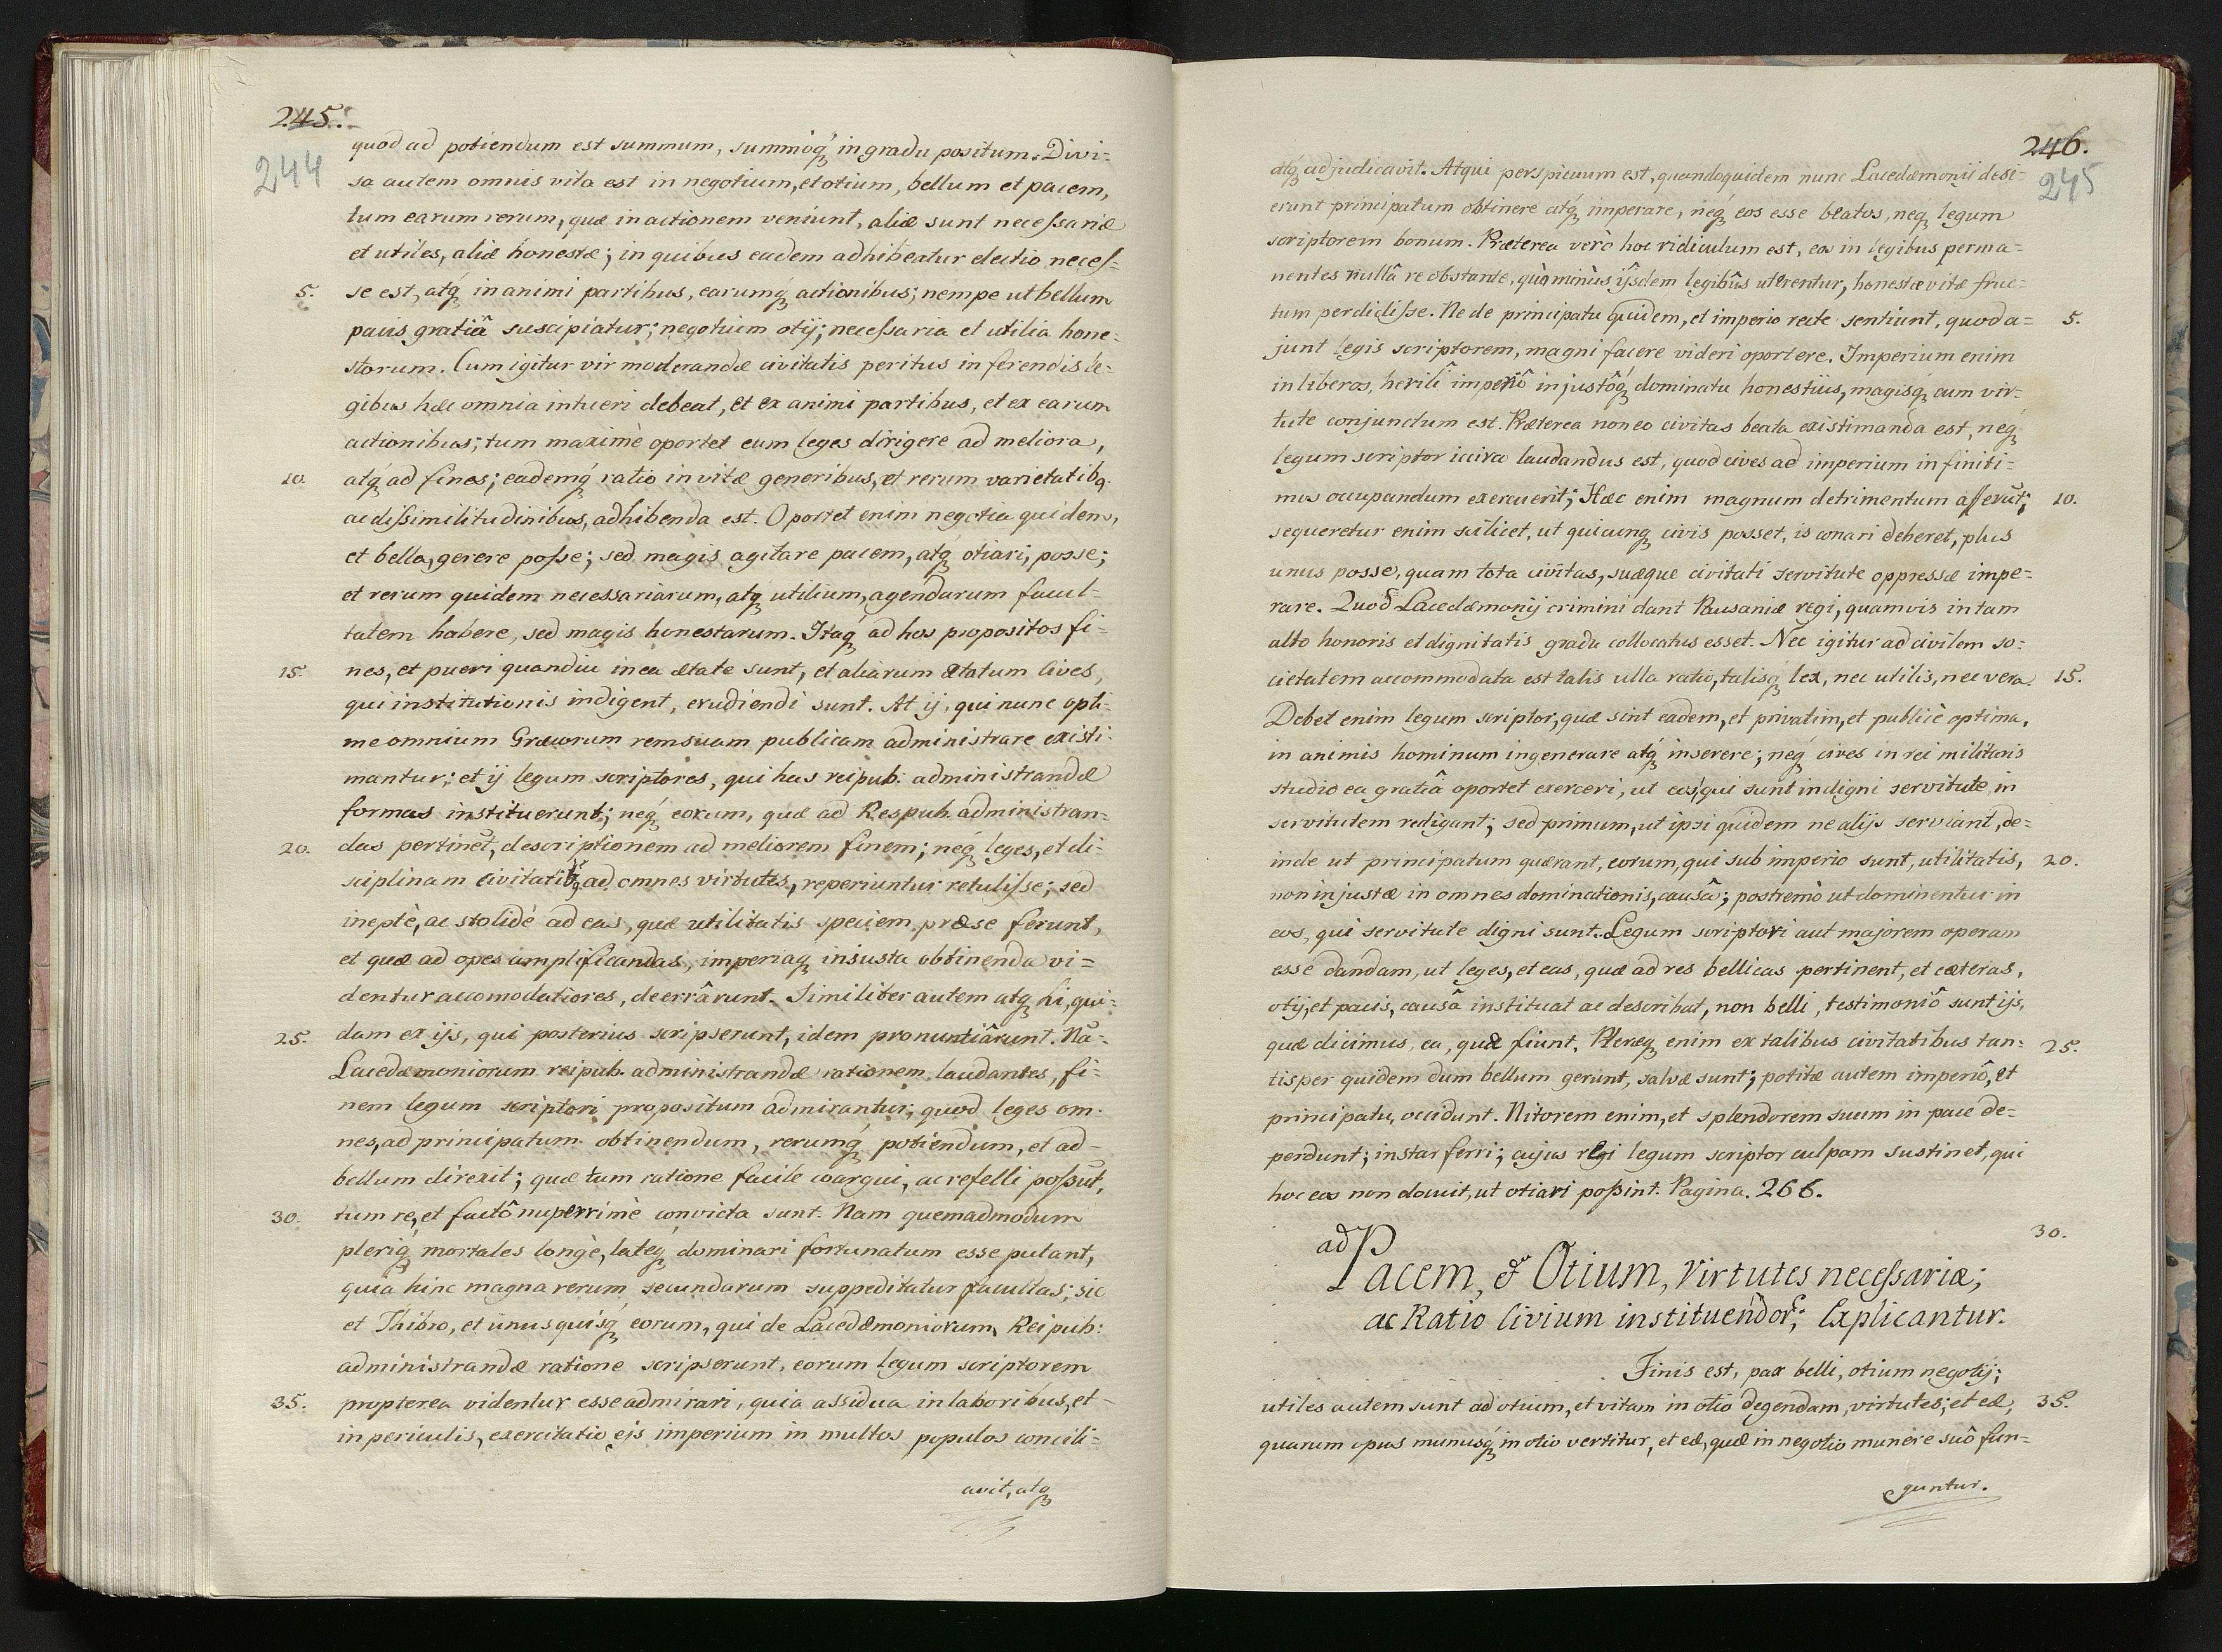 245.
244
quod ad potiendum est summum, summóq́ꝫ in gradu positum. Divi=
sa autem omnis vita est in negotium, et otium, bellum et pacem,
tum earum rerum, quæ in actionem veniunt, aliæ sunt necessariæ
et utiles, aliæ honestæ; in quibus eadem adhibeatur electio neces=
5. se est, atq́ꝫ in animi partibus, earumq́ꝫ actionibus; nempe ut bellum
pacis gratiâ suscipiatur; negotium otij; necessaria et utilia hone=
storum. Cum igitur vir moderandæ civitatis peritus in ferendis le=
gibus hæc omnia intueri debeat, et ex animi partibus, et ex earum
actionibus; tum maximè oportet eum leges dirigere ad meliora,
10. atq́ꝫ ad fines; eademq́ꝫ ratio in vitæ generibus, et rerum varietatibꝯ.
ac dissimilitudinibus, adhibenda est. Oportet enim negotia quidem,
et bella, gerere posse; sed magis agitare pacem, atq́ꝫ otiari, posse;
et rerum quidem necessariarum, atqꝫ utilium, agendarum facul=
tatem habere, sed magis honestarum. Itaq́ꝫ ad hos propositos fi=
15. nes, et pueri quandiu in ea ætate sunt, et aliarum ætatum cives,
qui institutionis indigent, erudiendi sunt. At ij, qui nunc opti=
me omnium Græcorum rem suam publicam administrare existi=
mantur; et ij legum scriptores, qui has reipub. administrandæ
formas instituerunt; neq́ꝫ eorum, quæ ad Respub. administran=
20. das pertinēt, descriptionem ad meliorem finem; neq́ꝫ leges, et di=
sciplinam civitatibꝯ ad omnes virtutes, reperiuntur retulisse; sed
ineptè, ac stolidè ad eas, quæ utilitatis speciem præ se ferunt,
et quæ ad opes amplificandas, imperiaqꝫ iniusta obtinenda vi=
dentur accomodatiores, deerrârunt. Similiter autem atqꝫ hi, qui=
25. dam ex ijs, qui posterius scripserunt, idem pronuntiârunt. Nā=
Lacedæmoniorum reipub. administrandæ rationem laudantes, fi=
nem legum scriptori propositum admirantur; quod leges om=
nes, ad principatum obtinendum, rerumq́ꝫ potiendum, et ad=
bellum direxit; quæ tum ratione facile coargui, ac refelli possūt,
30. tum re, et factô nuperrimè convicta sunt. Nam quemadmodum
pleriq́ꝫ mortales longè, lateq́ꝫ dominari fortunatum esse putant,
quia hinc magna rerum secundarum suppeditatur facultas; sic
et Thibro, et unusquisq́ꝫ eorum, qui de Lacedæmoniorum Reipub:
administrandæ ratione scripserunt, eorum legum scriptorem
35. propterea videntur esse admirari, quia assidua in laboribus, et=
in periculis, exercitatio ejs imperium in multos populos concili=
avit, atqꝫ
246.
245
atqꝫ adjudicavit. Atqui perspicuum est, quandoquidem nunc Lacedæmonij desi=
erunt principatum obtinere atq́ꝫ imperare, neq́ꝫ eos esse beatos, neqꝫ legum
scriptorem bonum. Præterea verò hoc ridiculum est, eos in legibus perma=
nentes nullâ re obstante, quò minùs ijsdem legibûs uterentur, honestæ vitæ fruc=
tum perdidisse. Ne de principatu quidem, et imperio recte sentiunt, quod a= 5.
junt legis scriptorem, magni facere videri oportere. Imperium enim
in liberos, herilî imperiô injustôq́ꝫ dominatu honestius, magisqꝫ cum vir=
tute conjunctum est. Præterea non eo civitas beata existimanda est, neq́ꝫ
legum scriptor iccirco laudandus est, quod cives ad imperium in finiti=
mos occupandum exercuerit; Hæc enim magnum detrimentum afferūt; 10.
sequeretur enim scilicet, ut quicunqꝫ civis posset, is conari deberet, plus
unus posse, quam tota civitas, suæque civitati servitute oppressæ impe=
rare. Quod Lacedæmonij crimini dant Pausaniæ regi, quamvis in tam
alto honoris et dignitatis gradu collocatus esset. Nec igitur ad civilem so=
cietatem accommodata est talis ulla ratio, talisq́ꝫ lex, nec utilis, nec vera. 15.
Debet enim legum scriptor, quæ sint eadem, et privatim, et publicè optima,
in animis hominum ingenerare atq́ꝫ inserere; neq́ꝫ cives in rei militaris
studio ea gratiâ oportet exerceri, ut eos, qui sunt indigni servitute, in
servitutem redigant; sed primum, ut ipsi quidem ne alijs serviant, de=
inde ut principatum quærant, eorum, qui sub imperio sunt, utilitatis, 20.
non injustæ in omnes dominationis, causâ; postremò ut dominentur in
eos, qui servitute digni sunt. Legum scriptori aut majorem operam
esse dandam, ut leges, et eas, quæ ad res bellicas pertinent, et cæteras,
otij, et pacis, causâ instituat ac describat, non belli, testimoniô sunt ijs,
quæ dicimus, ea, quæ fiunt. Pleræqꝫ enim ex talibus civitatibus tan= 25.
tisper quidem dum bellum gerunt, salvæ sunt; potitæ autem imperiô, et
principatu, occidunt. Nitorem enim, et splendorem suum in pace de=
perdunt; instar ferri; cujus rei legum scriptor culpam sustinet, qui
hoc eos non docuit, ut otiari possint. Pagina. 266.
30.
ad Pacem, & Otium, Virtutes necessariæ;
ac Ratio Civium instituendor̄; Explicantur.
Finis est, pax belli, otium negotij;
utiles autem sunt ad otium, et vitam in otio degendam, virtutes; et eæ, 35.
quarum opus munusq́ꝫ in otio vertitur, et eæ, quæ in negotio munere suô fun=
guntur.